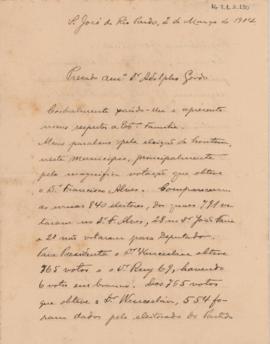 S. José do Rio Pardo, 2 de Março de 1914
Prezado amº Dr. Adolpho Gordo
Cordialmente saúdo-lhe e apresento
meus respeitos a Exª Familia.
Meus parabens pela eleição de hontem,
neste municipio, principalmente
pela magnifica votação que obteve
o Dr. Francisco Alves. Compareceram
as urnas 840 eleitores, dos quaes 711 vo-
taram no Dr. F. Alves, 28 no Dr. João
e 21 não votaram para Deputado.
Para Presidente o Dr. Wenceslau obteve
765 votos e o Dr. Ruy 69, havendo
6 votos em branco. Dos 765 votos
que obteve o Dr. Wenceslau, 554 fo-
ram dados pelo eleitorado do Partido